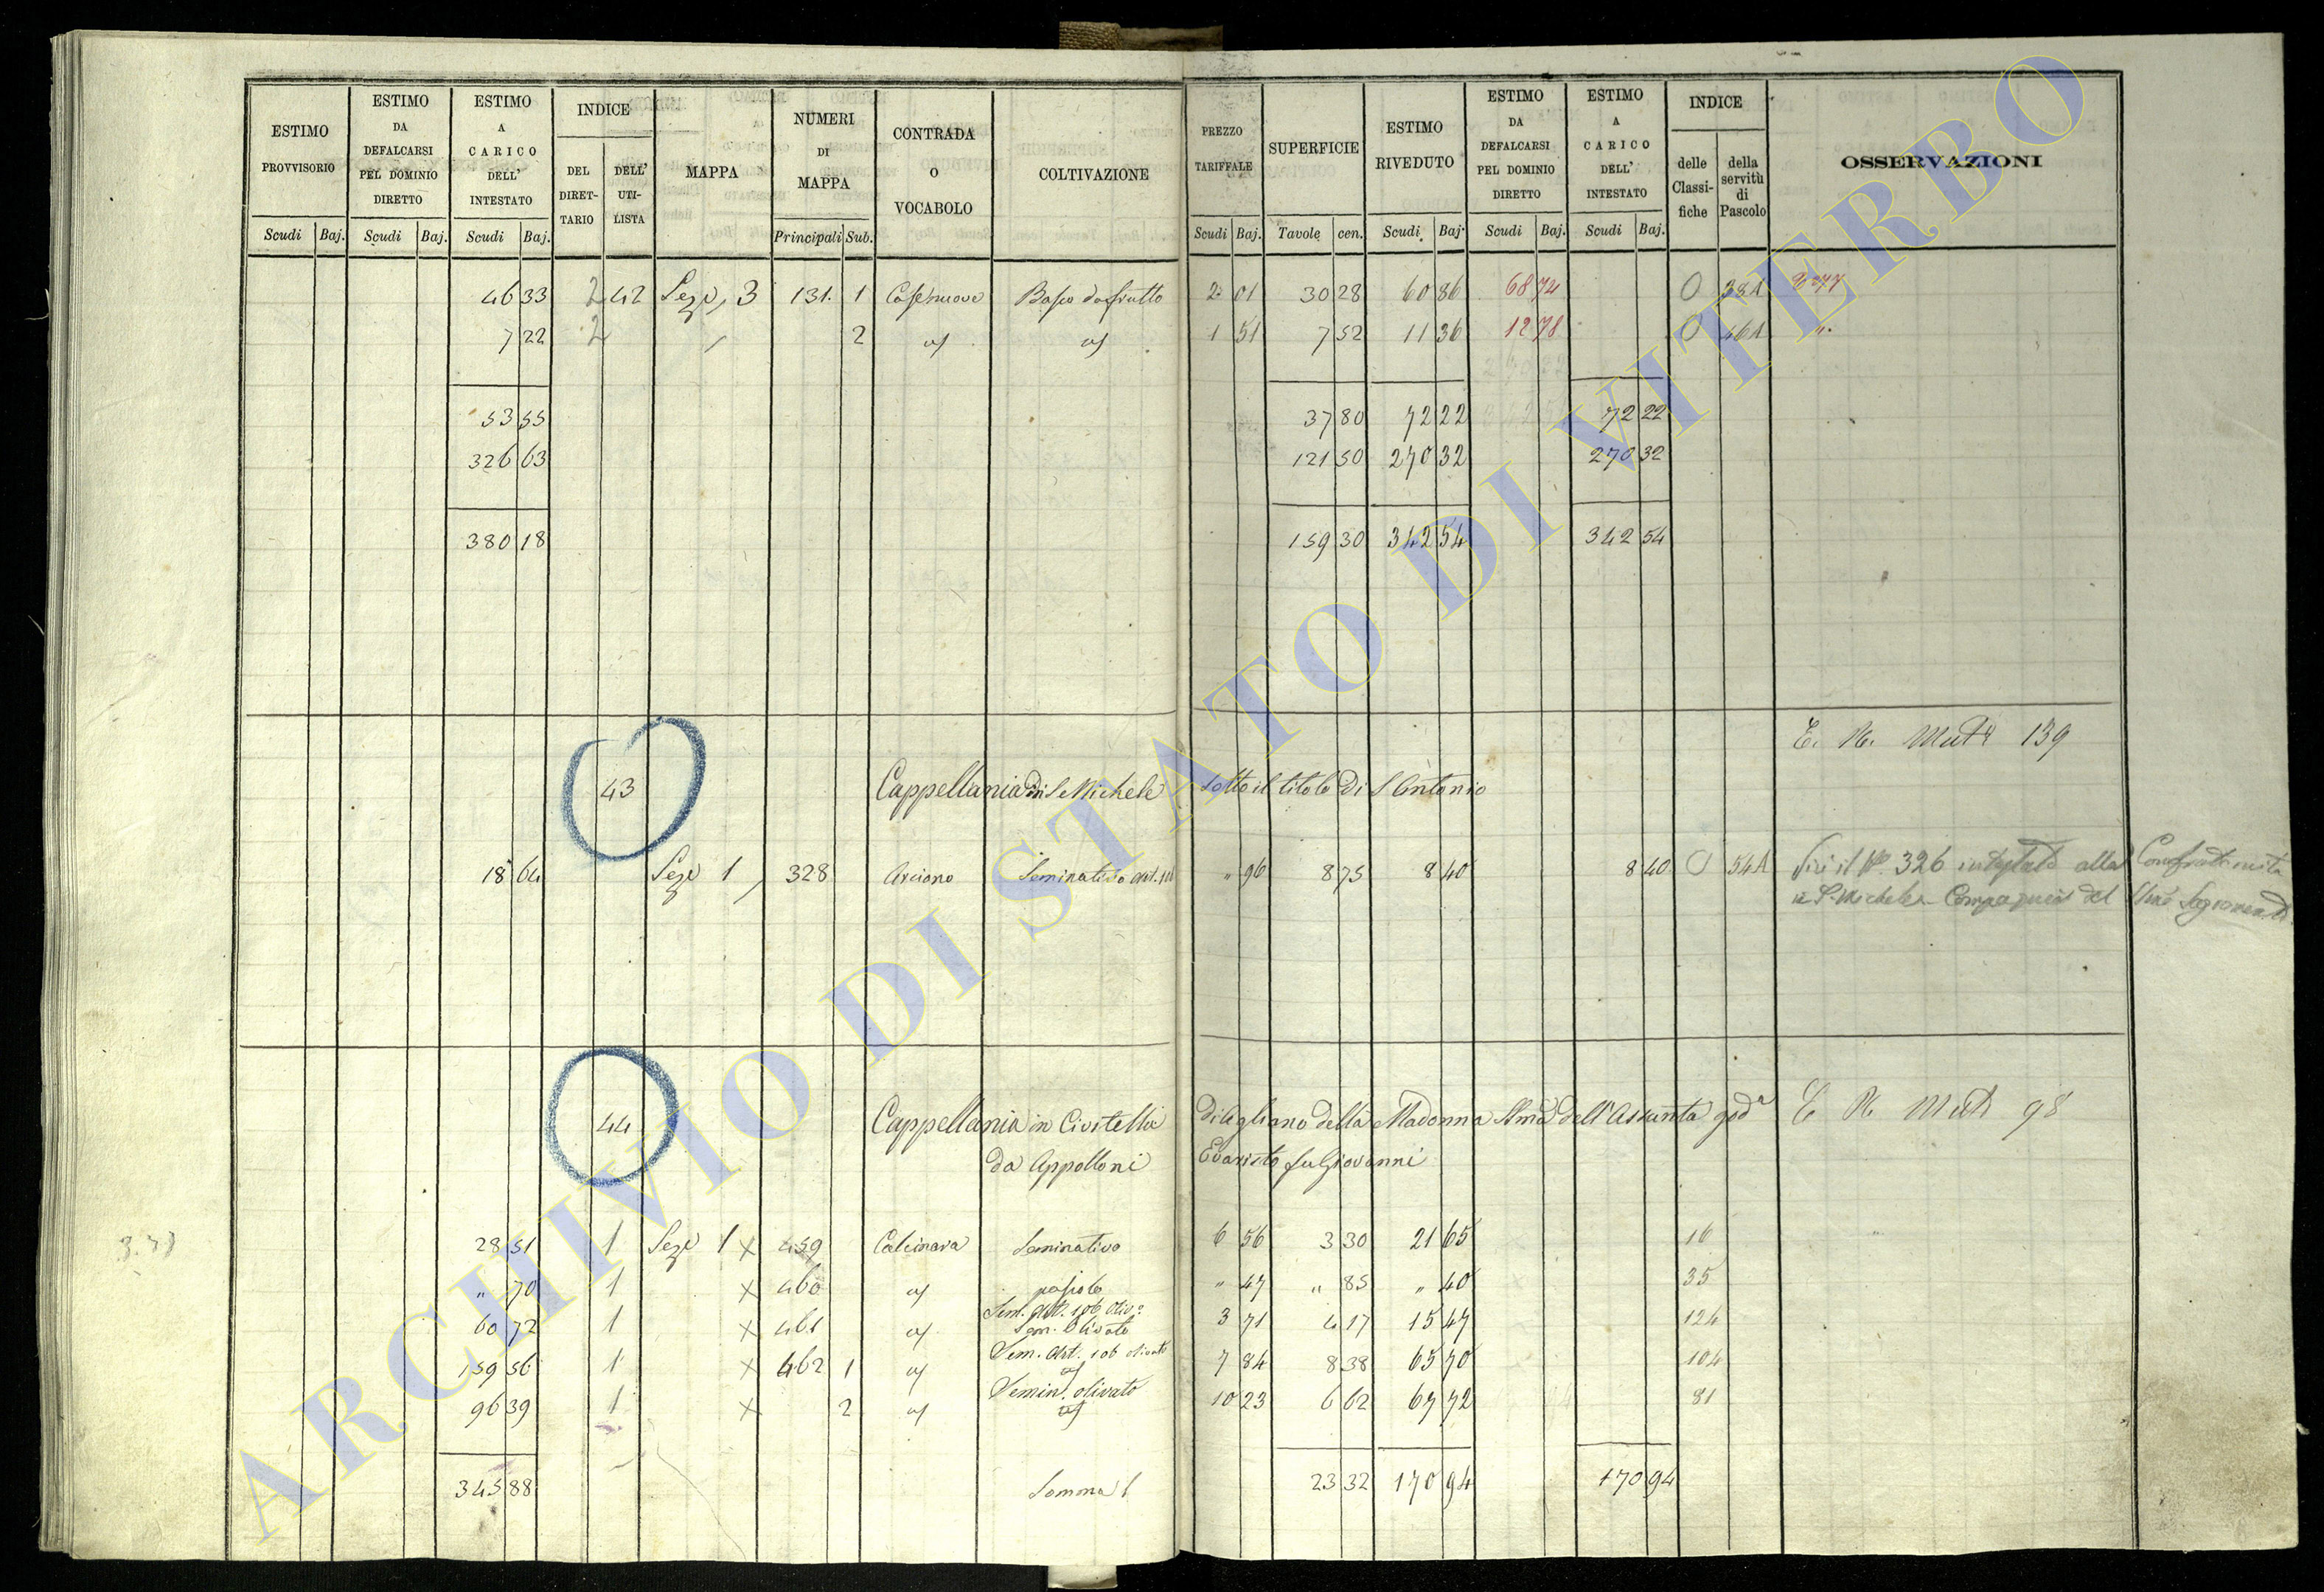 ESTIMO PROVVISORIO Scudi Baj.
ESTIMO DA DEFALCARSI PEL DOMINIO DIRETTO Scudi Baj.
ESTIMO A CARICO DELL' INTESTATO Scudi Baj.
INDICE DEL DIRET-TARIO DELL' UTI-LISTA
MAPPA
NUMERI DI MAPPA Principali Sub.
CONTRADA O VOCABOLO
COLTIVAZIONE
PREZZO TARIFFALE Scudi Baj.
SUPERFICIE Tavole cen.
ESTIMO RIVEDUTO Scudi Baj.
ESTIMO DA DEFALCARSI PEL DOMINIO DIRETTO Scudi Baj.
ESTIMO A CARICO DELL' INTESTATO Scudi Baj.
INDICE delle Classi-fiche della servitù di Pascolo
OSSERVAZIONI
46 33 2 42 Seze 3 131. 1 Casenuove Bosco da frutto 2 01 30 28 60 86 68 74 0 38A
7 22 2 2 a/ a/ 1 51 7 52 11 36 12 78 0 46A "
53 55 37 80 72 22 72 22
326 63 121 50 270 32 270 32
380 18 159 30 342 54 342 54
E. R. Mut 139
43 Cappellania di S Michele sotto il titolo di S Antonio
18 64 Seze 1 328 Arciano Seminativo " 96 8 75 8 40 8 40 0 54A Vedi il No. 326 intestato alla Confraternita
di S. Michele Compagnia del Smo Sagramento
44 Cappellania in Civitella di Agliano della Madonna Sma dell'Assunta god.a E R Mut 98
da Appolloni Evaristo fu Giovanni
28 51 1 Seze 1 x 459 Calcinara Seminativo 6 56 3 30 21 65 16
" 70 1 x 460 a/ pascolo " 47 " 85 " 40 35
Sem. Art. 106 Oliv.o
60 72 1 x 461 a/ Sem. Olivato 3 71 4 17 15 47 124
Sem. Art. 106 olivato
159 56 1 x 462 1 a/ a/ 7 84 8 38 65 70 104
Semin. olivato
96 39 1 x 2 a/ a/ 10 23 6 62 67 72 81
345 88 Somma 23 32 170 94 170 94
ARCHIVIO DI STATO DI VITERBO